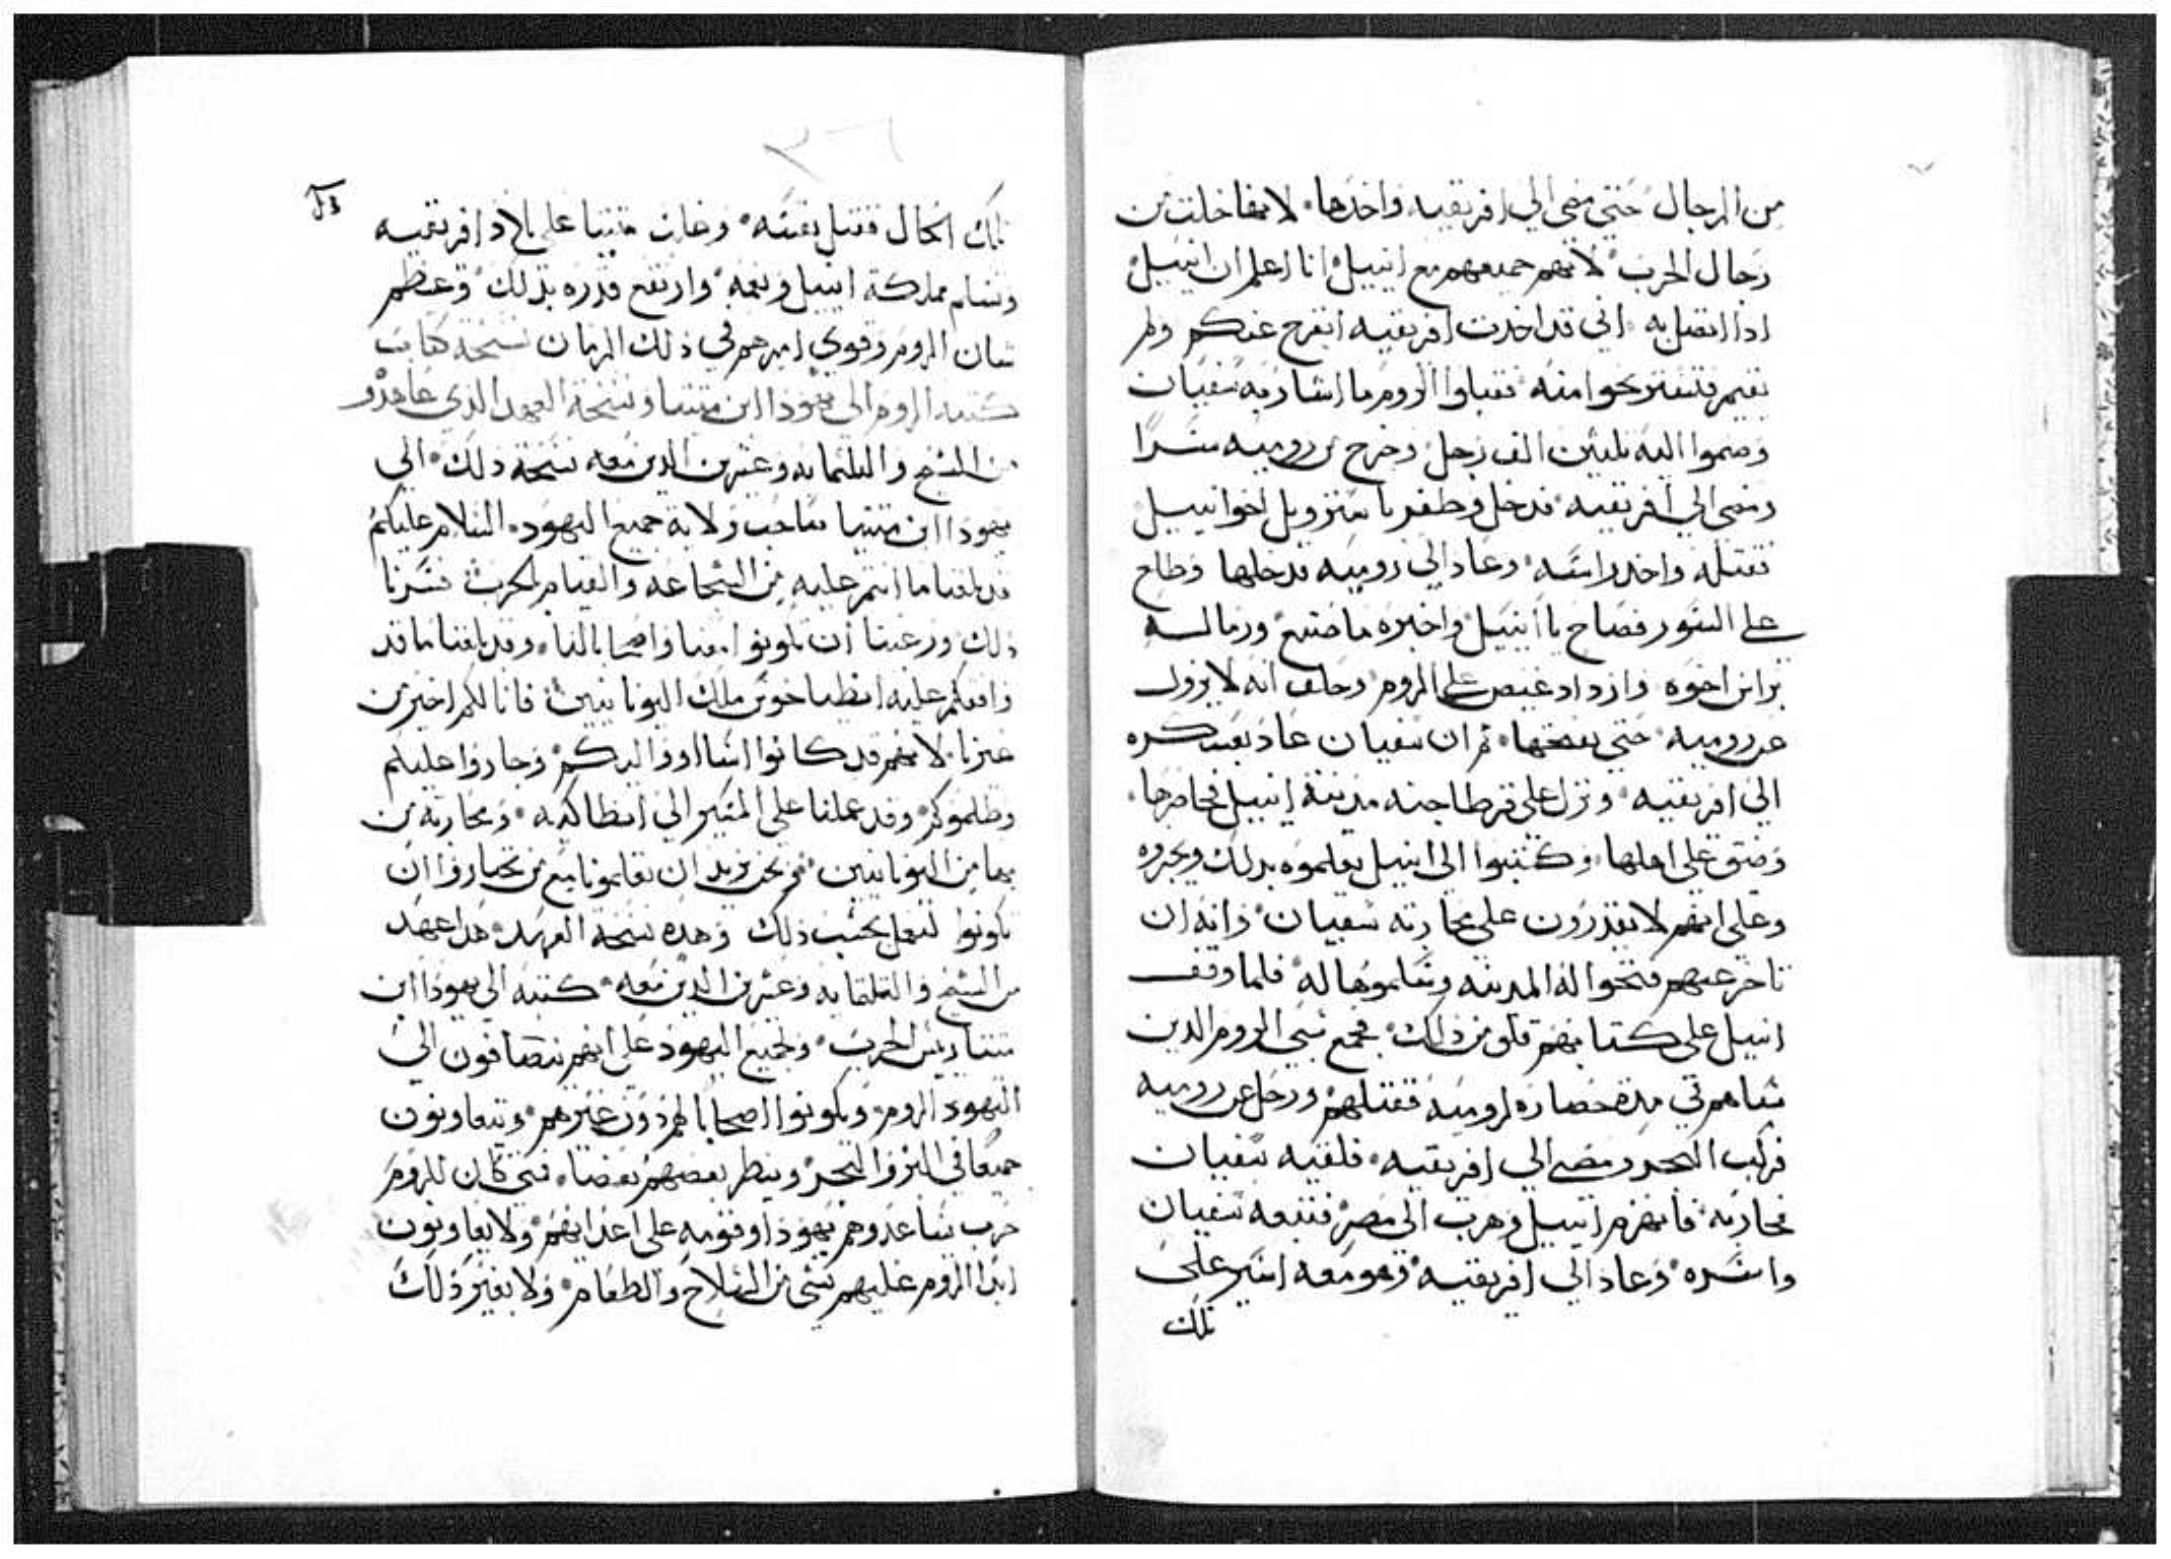 من الرجال حتى مضى الي افريقيه واخدها لانها خلت من
رجال الحرب لانهم جميعهم مع انيبيل انا اعلم ان انيبيل
ادا اتصل به اني قد اخدت افريقيه انفرج عنكم ولم
يقيم فتستريحوا منه فقبلوا الروم ما اشار به سفيان
وضموا اليه ثلثين الف رجل وخرج من روميه سرا
ومضى الي افريقيه فدخل وظفر باسنزوبل اخو انيبيل
فقتله واخد راسه وعاد الي روميه فدخلها وطلع
على السور فصاح يا انيبيل واخبره ما صنع ورما اليه
براس اخوه وازداد غيض على الروم وحلف انه لا يزول
عن روميه حتى يفتحها ثم ان سفيان عاد بعسكره
الي افريقيه ونزل على قرطاجنه مدينة انيبيل فحاصرها
وضيق على اهلها وكتبوا الى انيبيل يعلموه بدلك ويخبروه
وعلى انهم لا يقدرون على محاربته سفيان وانه ان
تاخر عنهم فتحوا له المدينه وسلموها له فلما وقف
انيبيل على كتابهم قلق من ذلك فجمع سبي الروم الدين
سباهم في مدة حصاره لروميه فقتلهم ورحل عن روميه
فركب البحر ومضى الي افريقيه فلقيه سفيان
فحاربه فانهزم انيبيل وهرب الى مصر فتبعه سفيان
واسره وعاد الي افريقيه وهو معه اسير على
تلك
تلك الحال فقتل نفسه
وتسلم مملكة انيبيل ونعمه وارتفع قدره بذلك وعظم
شان الروم وقوي امرهم في ذلك الزمان نسخة كتاب
كتبه الروم الى يهودا ابن متتيا ونسخة العهد الذي عاهدوه
من الشيخ والثلثمايه وعشرين الدين معه نسخة ذلك الي
يهودا ابن متتيا صاحب ولاية جميع اليهود السلام عليكم
قد بلغنا ما انتم عليه من الشجاعه والقيام بالحرب فسرنا
ذلك ورغبنا ان تكونوا معنا واصحابا لنا وقد بلغنا ما قد
وافقكم عليه انطياخوس ملك اليونانيين فانا لكم اخير من
غيرنا لانهم قد كانوا اساؤوا اليكم وجاروا عليكم
وظلموكم وقد عملنا على المسير الي انطاكيه ومحاربه من
بها من اليونانيين ونحن نريد ان تعلمونا مع من تختاروا ان
تكونوا لنعمل بحسب ذلك وهده نسخة العهد هدا عهد
من الشيخ والثلثمايه وعشرين الدين معه كتبه الي يهودا ابن
متتيا ريس الحرب ولجميع اليهود على انهم ينضافون الي
اليهود الروم ويكونوا اصحابا لهم دون غيرهم ويتعاونون
جميعا في البر والبحر وينظر بعضهم بعضا فمتى كان للروم
حرب ساعدوهم يهودا وقومه على اعدايهم ولا يعاونون
اعدا الروم عليهم بشي من السلاح والطعام ولا بغير ذلك